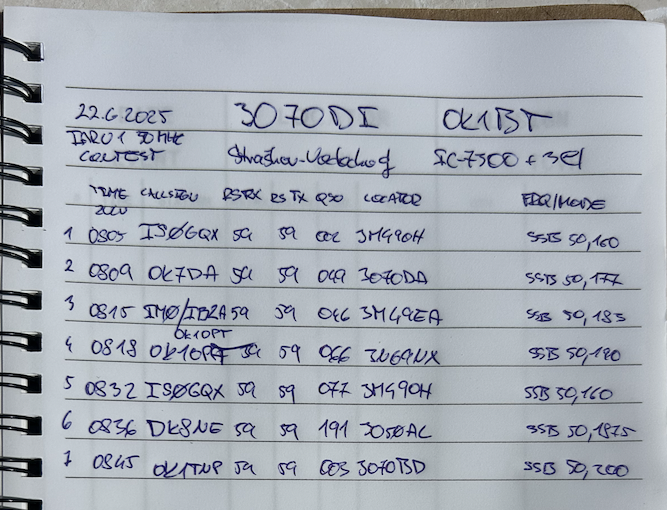 22.6.2025 3070DI OK1BT
IARU 1 50 MHz
CONTEST IC-7300 + 3el
TIME CALLSIGN RSRX RSTX QSO LOCATOR FRQ/MODE
1 0805 ISØGQX 59 59 JM49OH SSB 50,160
2 0809 OK7DA 59 59 049 JO70DA SSB 50,177
3 0815 IMØ/IB2A 59 59 046 JM49EA SSB 50,183
OK1OPT
4 0818 59 59 066 JN69NX SSB 50,190
5 0832 ISØGQX 59 59 077 JM49OH SSB 50,160
6 0836 DK8NE 59 59 191 JO50AC SSB 50,1875
7 0845 OK1TNP 59 59 003 JO70BD SSB 50,200